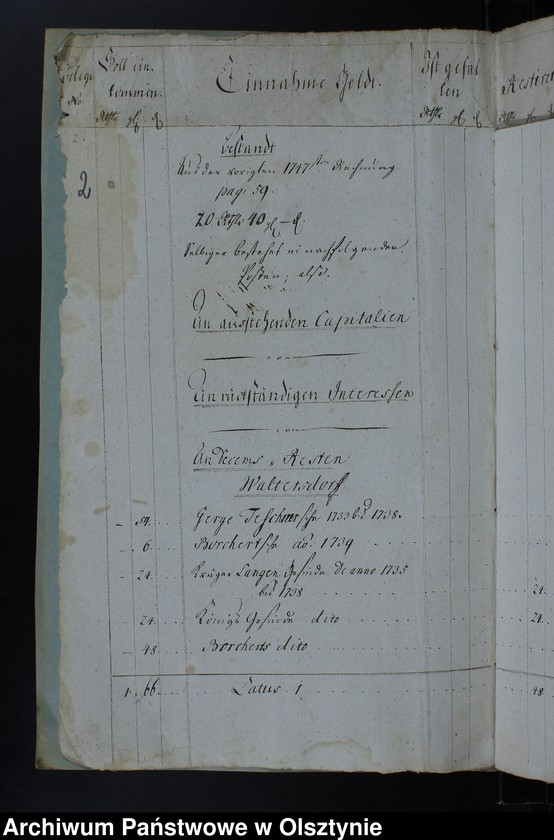 Belege No.
Soll ein-
kommen.
Einnahme Geldt.
Ist gefal
len
Restiret
Rthlr gl ₰
Rthlr gl ₰
2
Bestandt
Aus der vorigten 1747sten Rechnung
pag: 59.
20 Rthlr 40 gl — ₰.
Selbiger bestehet in nachfolgenden
Posten, alß.
An ausstehenden Capitalien
An rückständigen Interessen
An Decems-Resten
Waltersdorff
- 54. Gerge 1733 biß 1738.
- 6. Borchertsche ao: 1739
- 24. Krüger Langen Gesinde de anno 1735
biß 1738 24.
- 24. Königs Gesinde dito 24.
- 48 Borcherts dito
1. 66. Latus 1 48.
Archiwum Państwowe w Olsztynie